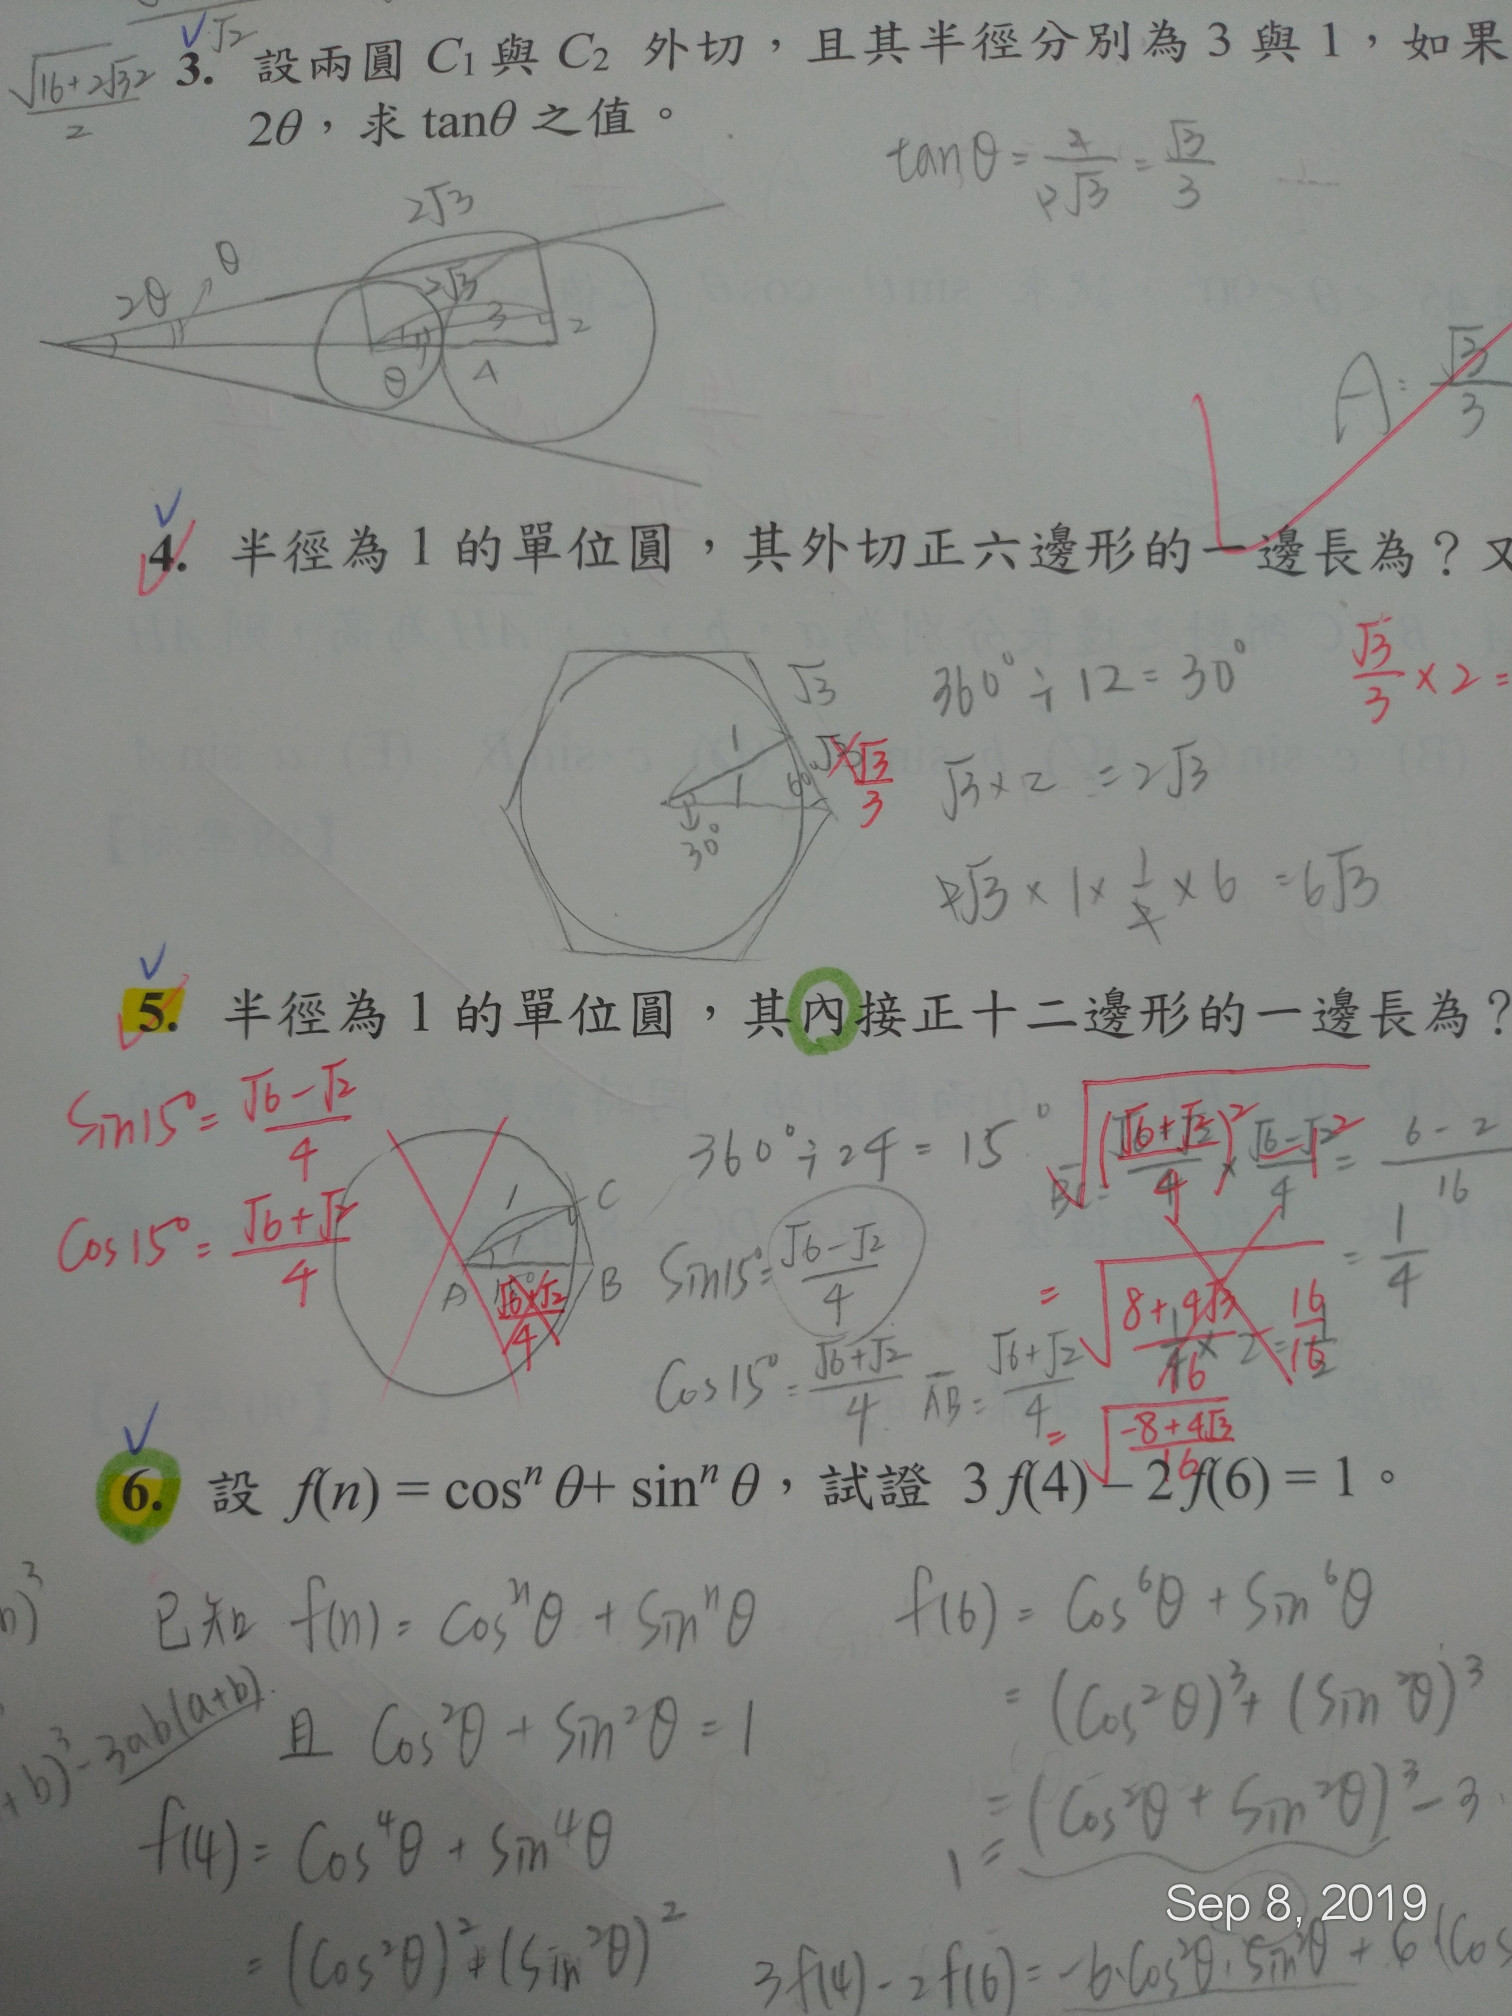 √2
√(16+2√32)
2
3. 設兩圓 C1 與 C2 外切，且其半徑分別為 3 與 1，如果
2θ，求 tanθ 之值。
tanθ = 2/2√3 = √3/3
2√3
θ
2θ
2√3
3
2
θ
4
A: √3/3
4. 半徑為 1 的單位圓，其外切正六邊形的一邊長為？又
√3
360° ÷ 12 = 30°
√3/3 × 2 =
1
1
60°
√3/3
30°
√3 × 2 = 2√3
2√3 × 1 × 1/2 × 6 = 6√3
5. 半徑為 1 的單位圓，其內接正十二邊形的一邊長為？
Sin15° = (√6-√2)/4
Cos15° = (√6+√2)/4
1
C
A
B
360° ÷ 24 = 15°
Sin15° = (√6-√2)/4
Cos15° = (√6+√2)/4
AB = (√6+√2)/4
= (6-2)/16
= 1/4
= √((8+4√3)/16
= √((-8+4√3)/16)
6. 設 f(n) = cosⁿ θ + sinⁿ θ，試證 3 f(4) – 2 f(6) = 1。
已知 f(n) = Cosⁿθ + Sinⁿθ
且 Cos²θ + Sin²θ = 1
f(4) = Cos⁴θ + Sin⁴θ
= (Cos²θ)² + (Sin²θ)²
+b)³ - 3ab(a+b)
f(6) = Cos⁶θ + Sin⁶θ
= (Cos²θ)³ + (Sin²θ)³
= (Cos²θ + Sin²θ)³ - 3
1 =
3f(4) - 2f(6) = -6·Cos²θ·Sin²θ + 6(Cos
Sep 8, 2019